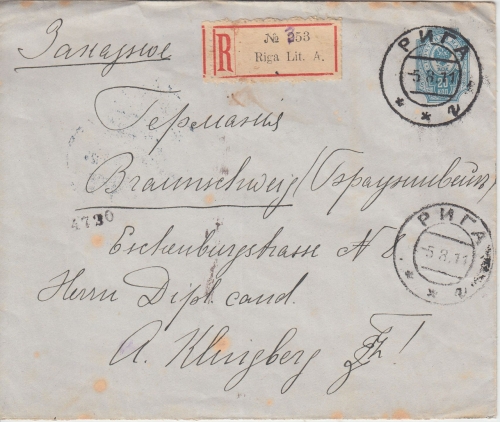 Заказное
R
№ 353
Riga Lit. A.
РИГА
5.8.11
20
Германия
Braunschweig (Брауншвейгъ)
4730
Eschenburgstrasse N 8
РИГА
5.8.11
Herrn Dipl. cand.
A. Klingberg